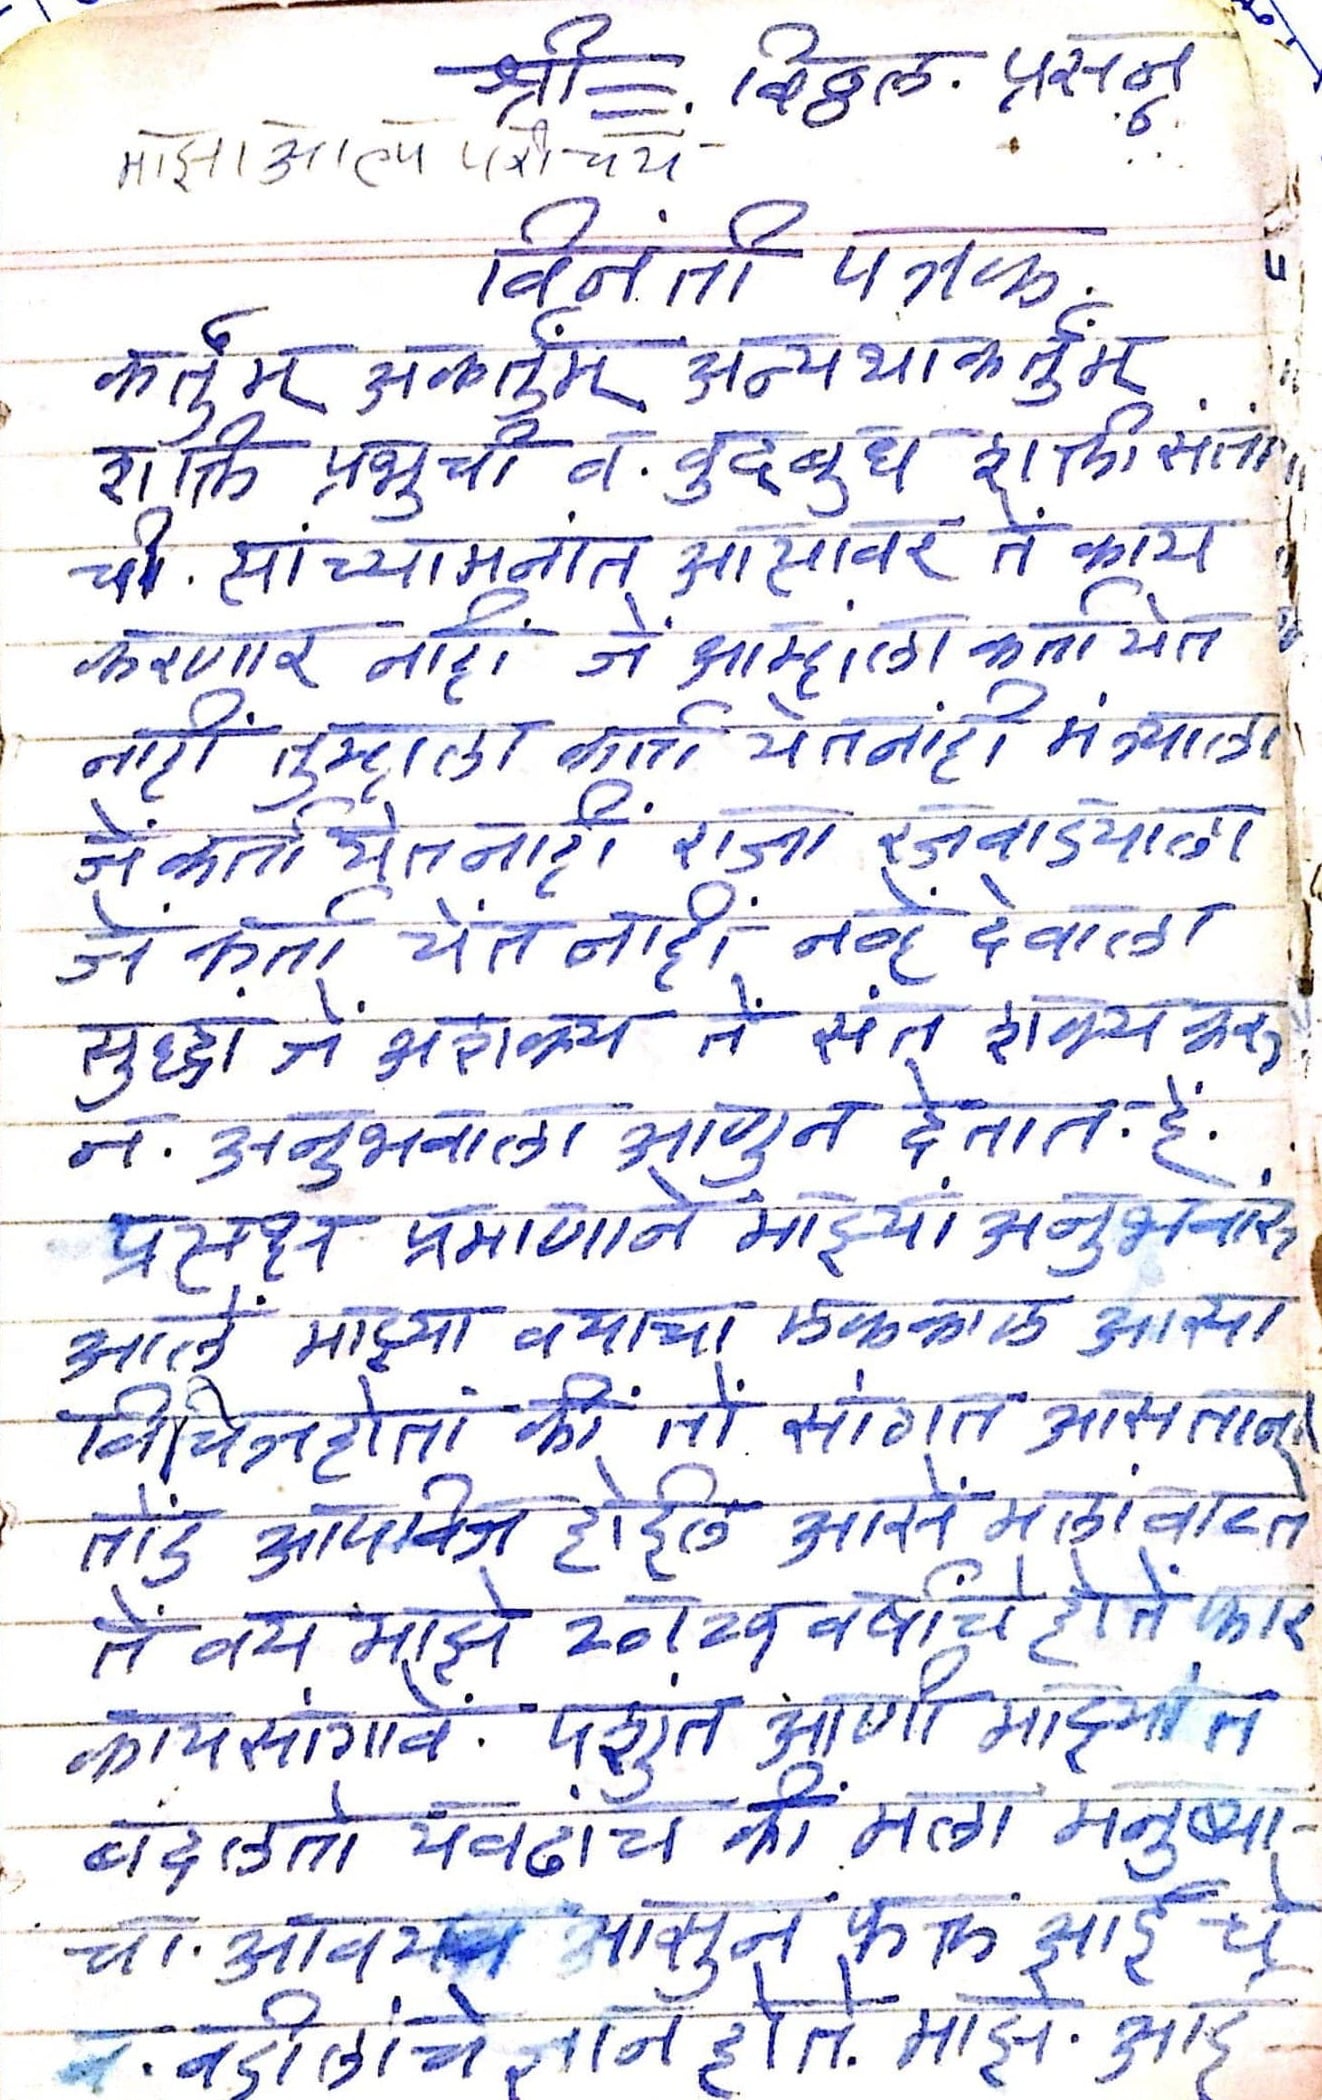 श्री=. विठ्ठल. प्रसन्न
माझा आत्म परीचय
विनंती पत्रक.
कर्तुंम् अकर्तुंम् अन्यथा कर्तुंम्
शक्ति प्रभुची व. वुदबुध शक्ती संता
ची. त्यांच्या मनांत आल्यावर तें काय
करणार नाहीं जें आम्हांला कर्ता येत
नाहीं तुम्हाला कर्ता येत नांही मंत्र्याला
जें कर्ता येत नाहीं राजा रजवाड्याला
जें कर्ता येंत नाहीं नव्हें देवाला
सुध्दां जें अशक्य तें संत शक्य करु
न. अनुभवाला आणुन देतात. हें.
प्रत्यक्ष प्रमाणानें माझ्या अनुभवांस
आलें माझ्या वयाचा येककाल आसा
विचित्र होता कीं तों सांगत आसताना
तोंड आपवित्र होईल आसें मला वाटते
तें वय माझे २० २१ वर्षाचे होतें फार
काय सांगावें. पशुंत आणी माझ्यांत
बदलतो येवढांच कीं मला मनुष्या-
चा. आवयव आसुन फक्त आई चे
व. वडीलांचे ज्ञान होते. माझे. आई